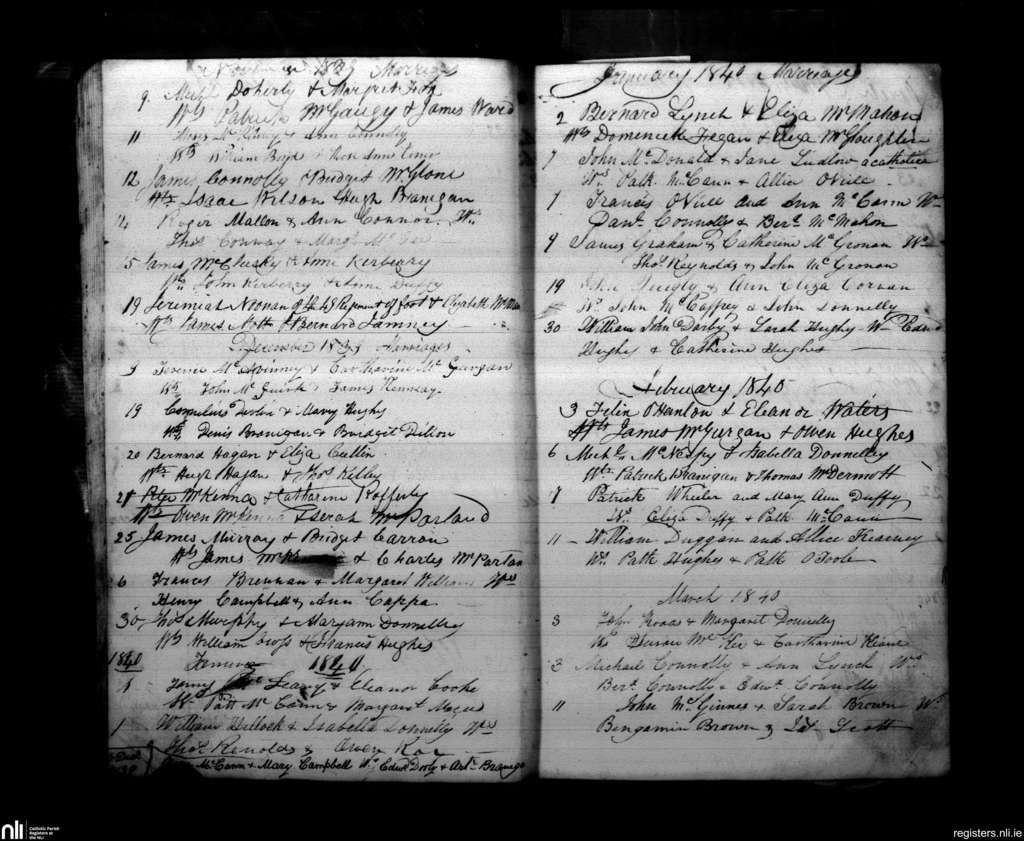 November 1839 Marriages
9. Michl Doherty & Margret Fox
Wts Patrick McGaugey & James Ward
11
Wts William Boyd &
12 James Connolly & Bridget McGlone
Wts Isaac Wilson Hugh Branigan
14 Roger Mallon & Ann Connor Ws
Thos Conway & Margt
15 James McClusky & Anne Kerbeary
Wts John Kerberry & Anne Duffy
19 Jeremiah Noonan of the Regiment of foot & Elizabeth
Wts James Nott & Bernard Lamney
December 1839 Marriages
9 Terence McAvinney & Catharine McGurgan
Ws John McGuirk & James Kennedy
19 Cornelius Devlin & Mary Hughs
Wts Denis Branigan & Bridget Dillon
20 Bernard Hagan & Eliza Cullin
Wts Hugh Hagan & Thos Kelly
Peter McKenna & Catharine Rafferty
Wts Owen McKenna & Sarah McParland
25 James Murray & Bridget Carron
Wts James & Charles McPartan
6 Francis Brennan & Margaret William Wss
Henry Campbell & Ann Cappa
30 Thos Murphy & Maryann Donnelley
Wts William Cross & Francis Hughes
1840 January 1840
1 James Leary & Eleanor Cooke
Ws Patt McCann & Margart
1 William Hillock & Isabella Donnelly Wss
Thos Renolds & Owen
McCann & Mary Campbell Ws Edwd Dorty & Arthr Branigan
January 1840 Marriages
2 Bernard Lynch & Eliza McMahon
Wts Dominick Fegan & Eliza McGloughlin
7 John McDonald & Jane Ludlow a catholice
Ws Patk McCann & Allice ONeile
7 Francis ONeile and Ann McCann Ws
Danl Connolly & Berd McMahon
9 James Graham & Catherine McGronan Ws
Thos Reynolds & John McGronan
19 John & Ann Eliza Cornan
Ws John McCaffrey & John Donnelly
30 William John Darby & Sarah Hughs Ws
Hughs & Catherine Hughes
February 1840
3 Felix OHanlon & Eleanor Waters
Wts James McGurgan & Owen Hughes
6 Michl & Isabella Donnelley
Wts Patrick Branigan & Thomas McDermott
7 Patrick Wheeler and Mary Ann Duffy
Ws Eliza Duffy & Patk McCann
11 William Duggan and Allice Kearney
Ws Patk Hughes & Patk OToole
March 1840
3 John Woods & Margaret Donnelly
Ws McKee & Catharine Keane
3 Michael Connolly & Ann Lynch Ws
Berd Connolly & Edwd Connolly
11 John McGinnes & Sarah Brown Ws
Bengamin Brown & Scott
nli Catholic Parish
Registers at
the NLI
registers.nli.ie